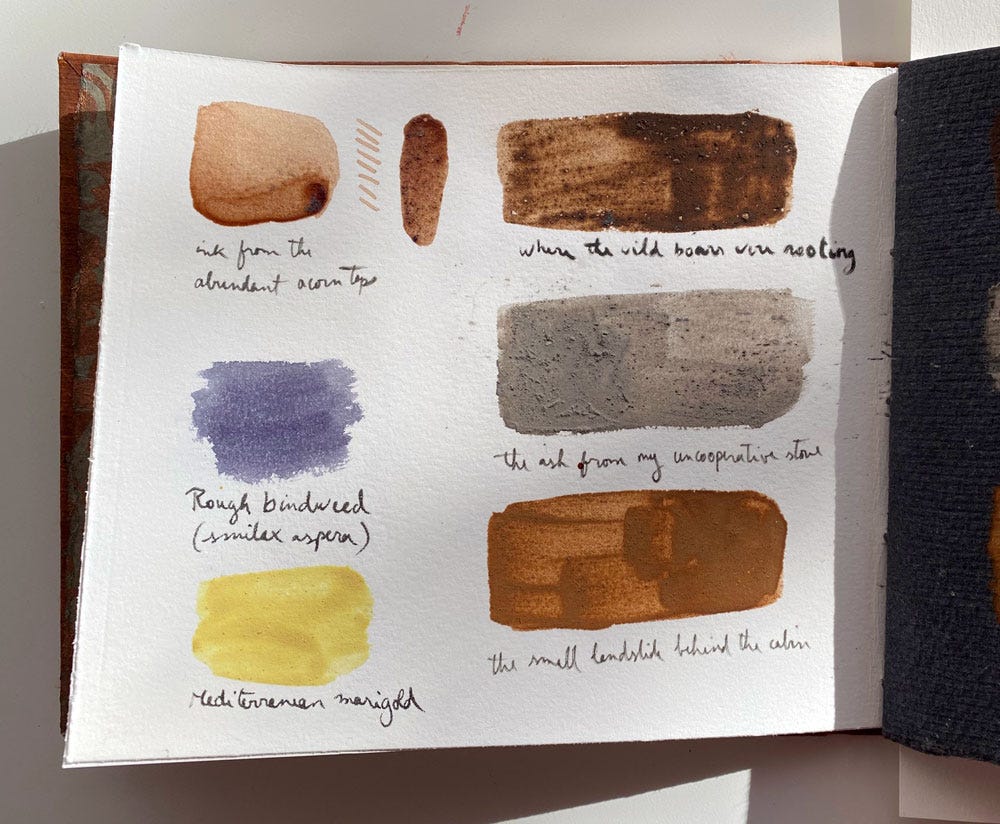 ink from the
abundant acorn tops
Rough bindweed
(smilax aspera)
Mediterranean marigold
where the wild boars were rooting
the ash from my uncooperative stove
the small landslide behind the cabin